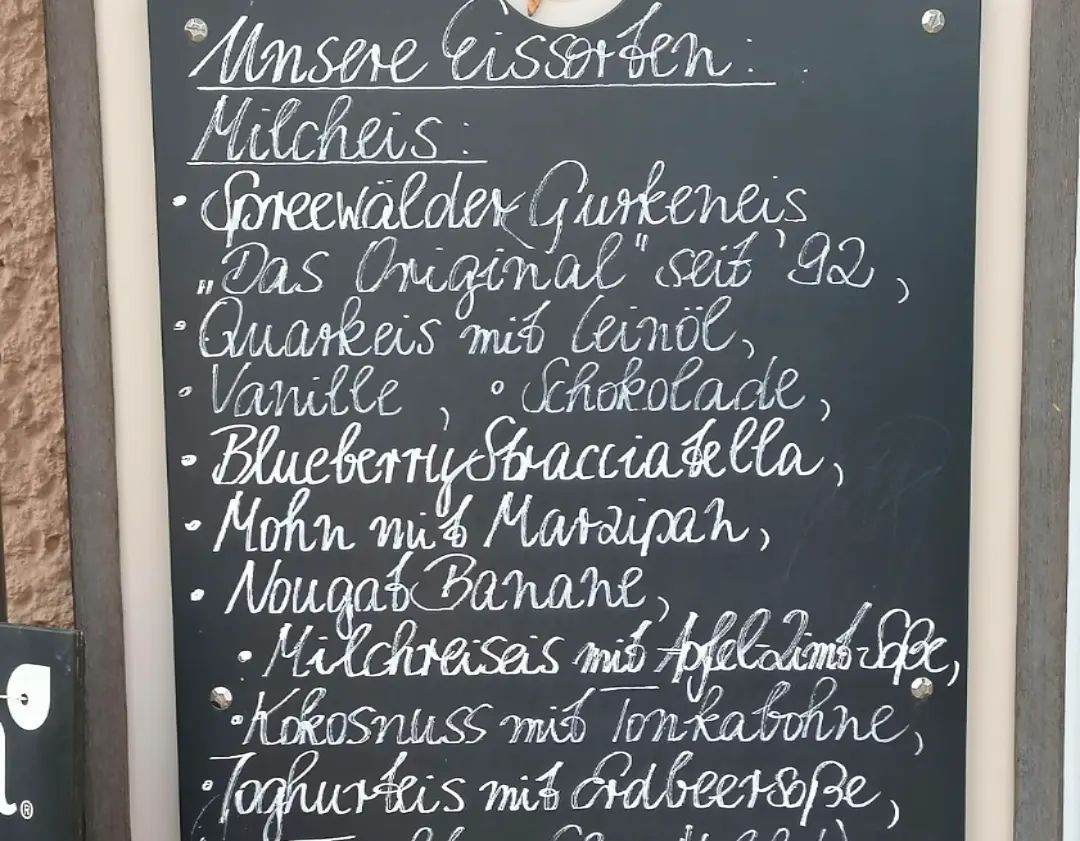 Unsere Eissorten:
Milcheis:
• Spreewälder Gurkeneis
„Das Original" seit '92,
• Quarkeis mit Leinöl,
• Vanille, • Schokolade,
• Blueberry Stracciatella,
• Mohn mit Marzipan,
• Nougat Banane,
• Milchreiseis mit Apfel-Zimt-Soße,
• Kokosnuss mit Tonkabohne,
• Joghurteis mit Erdbeersoße,
®